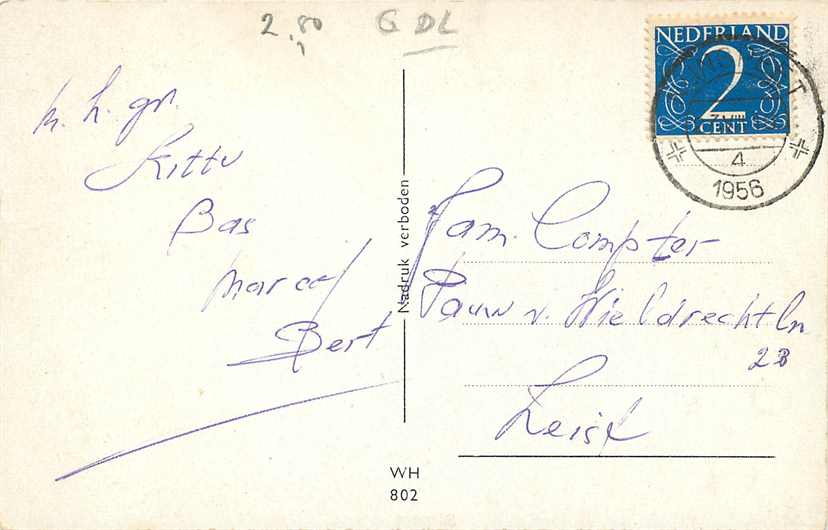 2.80 G DL
NEDERLAND
2
CENT
T
4
1956
m. h. gr.
Kitty
Bas
Marcel
Bert
Nadruk verboden
Fam. Compter
Pauw v. Wieldrechtln
23
Zeist
WH
802